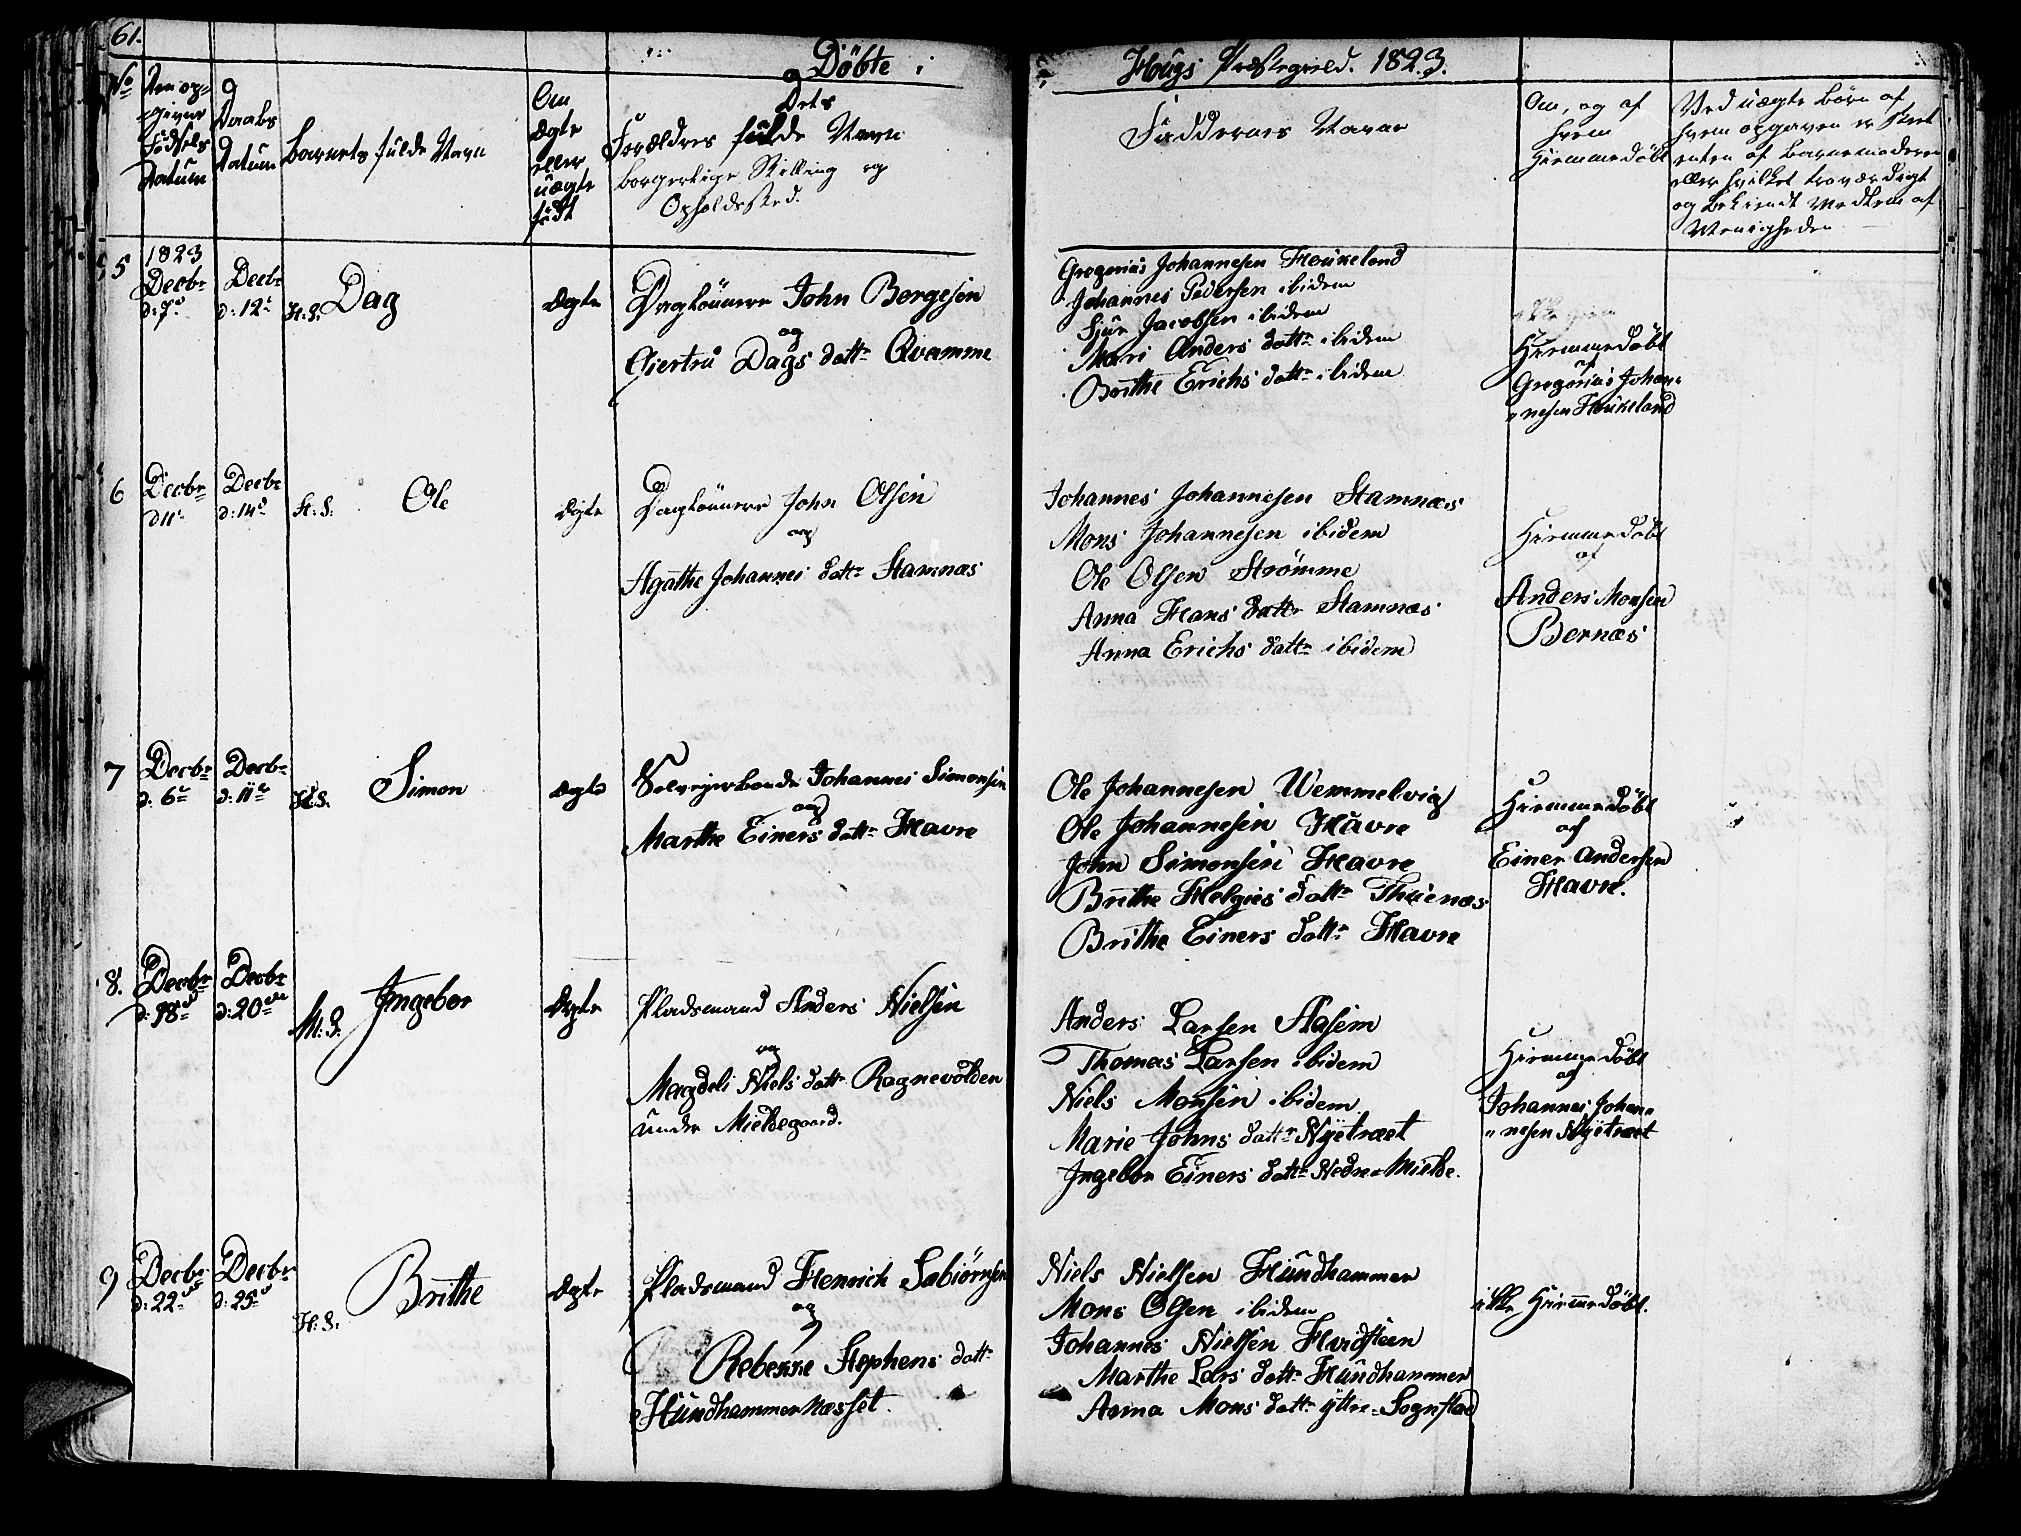 61.
Döbte i Hougs Præstegield. 1823.
No
Den op-
givne
Fødsels
Datum
Daabs
Datum
Barnets fulde Navn
Om
ægte
eller
uægte
født
Dets
Forældres fulde Navn
borgerlige Stilling og
Opholdssted.
Faddernes Navne
Om, og af
hvem
Hiemmedöbt
Ved uægte Børn af
hvem opgaven er skeet
enten af Barnemoderen
eller hvilket troværdigt
og bekiendt Medlem af
Menigheden
5
1823
Decbr
d: 7de
Decbr
d: 12te
H: S:
Dag
Ægte
Daglönnere John Børgesen
og
Giertru Dags datter Qvamme
Gregorius Johannesen Houkeland
Johannes Pedersen ibidem
Sjur Jacobsen ibidem
Mari Anders datter ibidem
Brithe Erichs datter ibidem
Hiemmedöbt
af
Gregorius Johan-
nesen Houkeland
6
Decbr
d 11te
Decbr
d: 14de
H: S:
Ole
Ægte
Daglönnere John Olsen
og
Agathe Johannes datter Stamnæs
Johannes Johannesen Stamnæs
Mons Johannesen ibidem
Ole Olsen Strømme
Anna Hans datter Stamnæs
Anna Erichs datter ibidem
Hiemmedöbt
af
Anders Monsen
Bernæs
7
Decbr
d: 6te
Decbr
d: 11te
H:S.
Simon
Ægte
Selvejerbonde Johannes Simonsen
og
Marthe Einers datter Havre
Ole Johannesen Wemmelvig
Ole Johannesen Havre
John Simonsen Havre
Brithe Helgies datter Thuenæs
Brithe Einers datter Havre
Hiemmedöbt
af
Einer Andersen
Havre.
8.
Decbr
d: 18de
Decbr
d: 20de
M: S.
Ingebor
Ægte
Pladsmand Anders Nielsen
og
Magdeli Niels datter Ragnevolden
under Mieldegaard.
Anders Larsen Aasem
Thomas Larsen ibidem
Niels Monsen ibidem
Marie Johns datter Nyetræet
Ingebor Einers datter Nedre Mielde.
Hiemmedöbt
af
Johannes Johan-
nesen Nyetræet
9
Decbr
d: 22de
Decbr
d: 25de
H: S.
Brithe
Ægte
Pladsmand Henrich Sabiørnsen
og
Rebekke Stephens datter
Hundhammernæsset.
Niels Nielsen Hundhammer
Mons Olsen ibidem
Johannes Nielsen Hvidsteen
Marthe Lars datter Hundhammer
Anna Mons datter yttre Sognstad
ikke Hiemmedöbt.